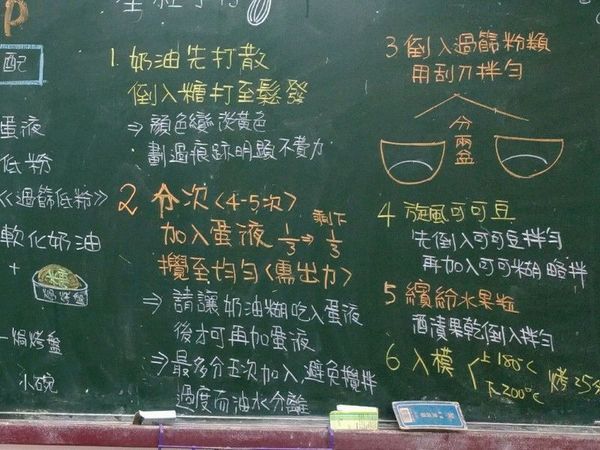 P
配
蛋液
低粉
《過篩低粉》
軟化奶油
+
鍋烤盤
小碗
1. 奶油先打散
倒入糖打至鬆發
⇒ 顏色變淡黃色
劃過痕跡明顯不費力
2 分次〈4-5次〉
加入蛋液 1/3 ⇒ 剩下 1/3
攪至均勻〈需出力〉
⇒ 請讓奶油糊吃入蛋液
後才可再加蛋液
⇒ 最多分五次加入,避免攪拌
過度而油水分離
3 倒入過篩粉類
用刮刀拌勻
分兩盆
4 旋風可可豆
先倒入可可豆拌勻
再加入可可糊略拌
5 繽紛水果粒
酒漬果乾倒入拌勻
6 入模 上180°C 烤25分
下200°C